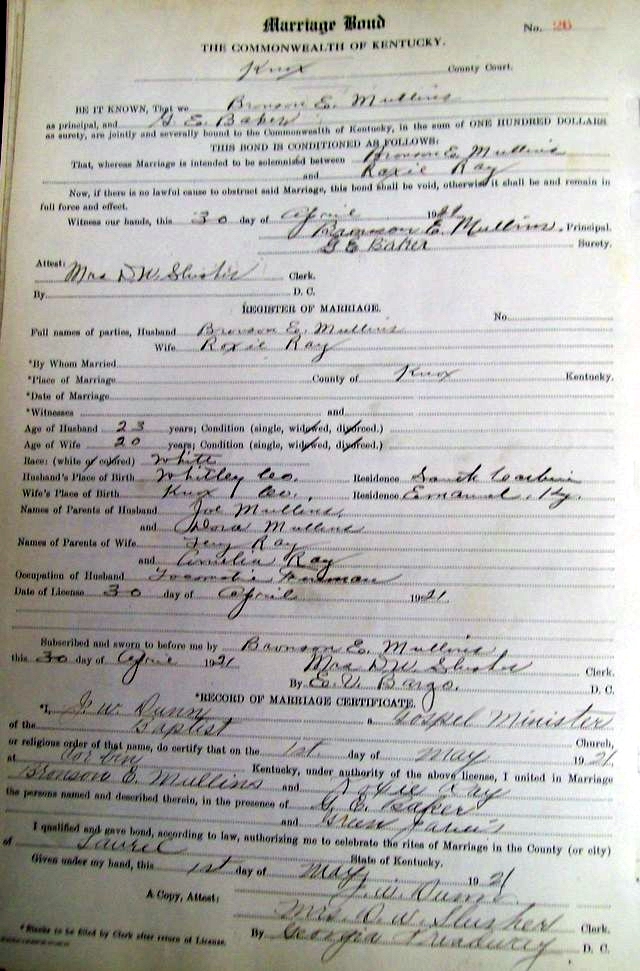 Marriage Bond No. 26
THE COMMONWEALTH OF KENTUCKY.
Knox County Court.
BE IT KNOWN, That we Bronson E. Mullins
as principal, and G. E. Baker
as surety, are jointly and severally bound to the Commonwealth of Kentucky, in the sum of ONE HUNDRED DOLLARS
THIS BOND IS CONDITIONED AS FOLLOWS:
That, whereas Marriage is intended to be solemnized between Bronson E. Mullins
and Roxie Ray
Now, if there is no lawful cause to obstruct said Marriage, this bond shall be void, otherwise it shall be and remain in
full force and effect.
Witness our hands, this 30 day of April 1921
Bronson E. Mullins. Principal.
G E Baker Surety.
Attest:
Mrs D. W. Slusher Clerk.
By D. C.
REGISTER OF MARRIAGE.
No.
Full names of parties, Husband Bronson E. Mullins
Wife Roxie Ray
*By Whom Married
*Place of Marriage County of Knox Kentucky.
*Date of Marriage
*Witnesses and
Age of Husband 23 years; Condition (single, widowed, divorced.)
Age of Wife 20 years; Condition (single, widowed, divorced.)
Race: (white or colored) White
Husband's Place of Birth Whitley Co. Residence South Corbin
Wife's Place of Birth Knox Co., Residence Emanuel, Ky.
Names of Parents of Husband Joe Mullins
and Dora Mullins
Names of Parents of Wife Ray
and Amelia Ray
Occupation of Husband Fireman
Date of License 30 day of April 1921
Subscribed and sworn to before me by Bronson E. Mullins
this 30 day of April 1921 Mrs D. W. Slusher Clerk.
By E. V. Bargo. D. C.
*RECORD OF MARRIAGE CERTIFICATE.
*I, J. W. Dunn a Gospel Minister
of the Baptist Church,
or religious order of that name, do certify that on the 1st day of May 1921
at Corbin Kentucky, under authority of the above license, I united in Marriage
Bronson E. Mullins and Roxie Ray
the persons named and described therein, in the presence of G. E. Baker
and Green
I qualified and gave bond, according to law, authorizing me to celebrate the rites of Marriage in the County (or city)
of Laurel State of Kentucky.
Given under my hand, this 1st day of May, 1921
J. W. Dunn
A Copy, Attest: Mrs. D. W. Slusher Clerk.
By Georgia Treadway D. C.
* Blanks to be filed by Clerk after return of License.